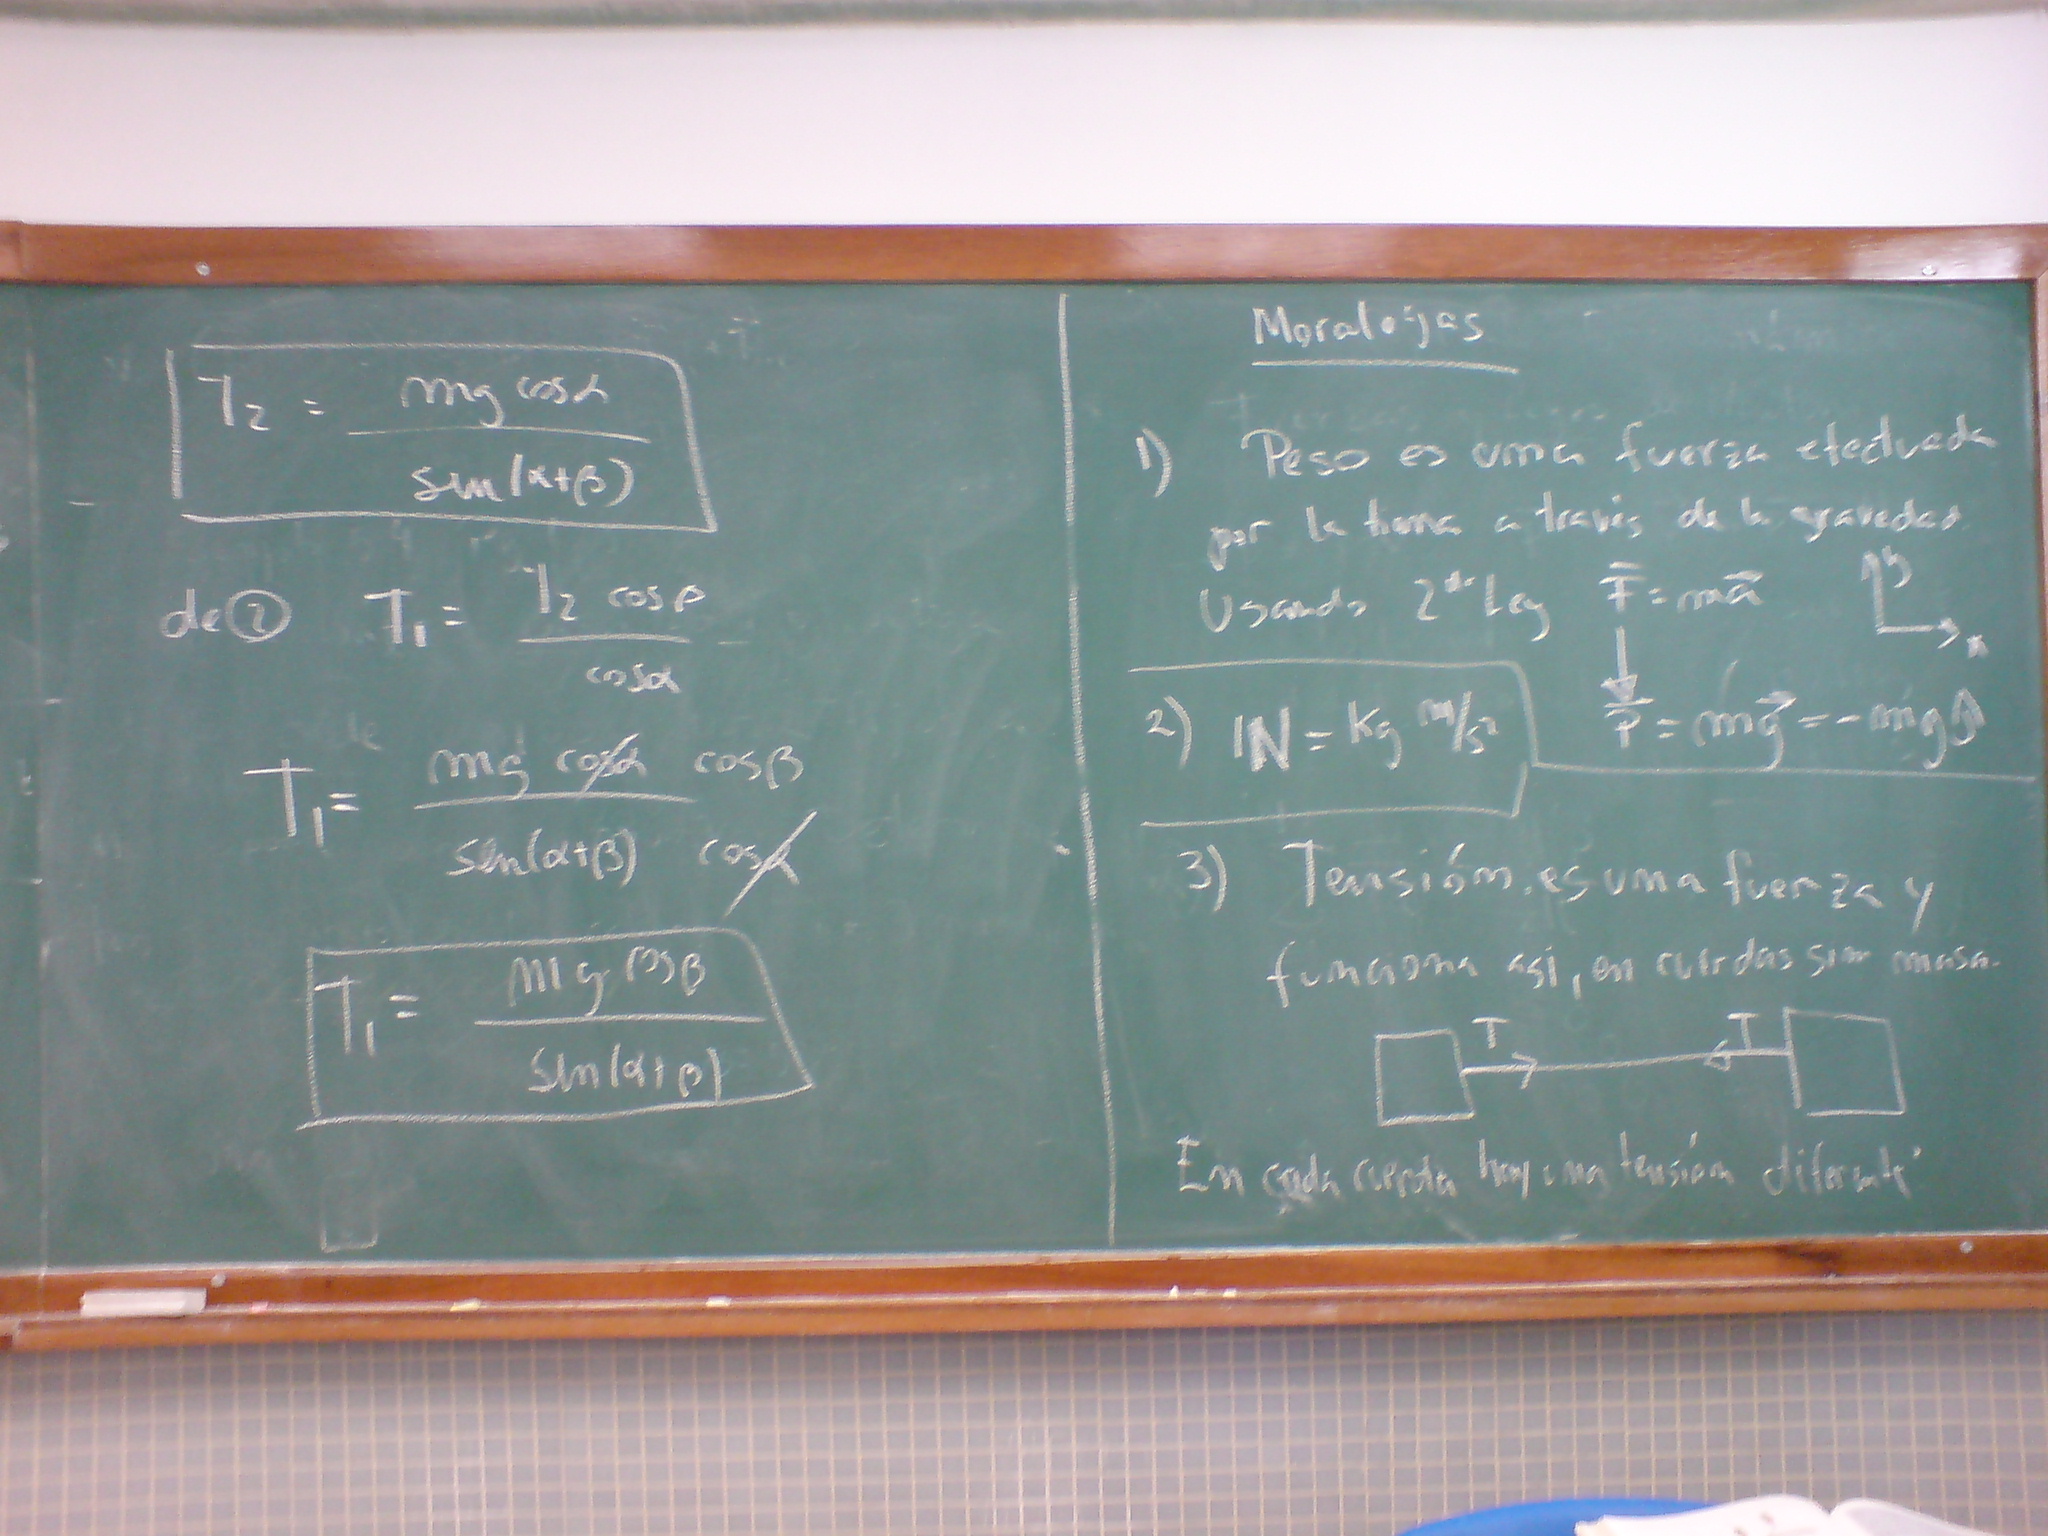 T₂ = mg cosα / sin(α+β)
de ② T₁ = T₂ cosβ / cosα
T₁ = mg cosα cosβ / sen(α+β) cosα
T₁ = mg cosβ / sin(α+β)
Moralejas
1) Peso es una fuerza efectuada
por la tierra a través de la gravedad
Usando 2da Ley F = ma
y
x
P = mg = -mgĵ
2) 1N = Kg m/s²
3) Tensión. es una fuerza y
funciona asi, en cuerdas sin masa.
T T
En cada cuerda hay una tensión diferente